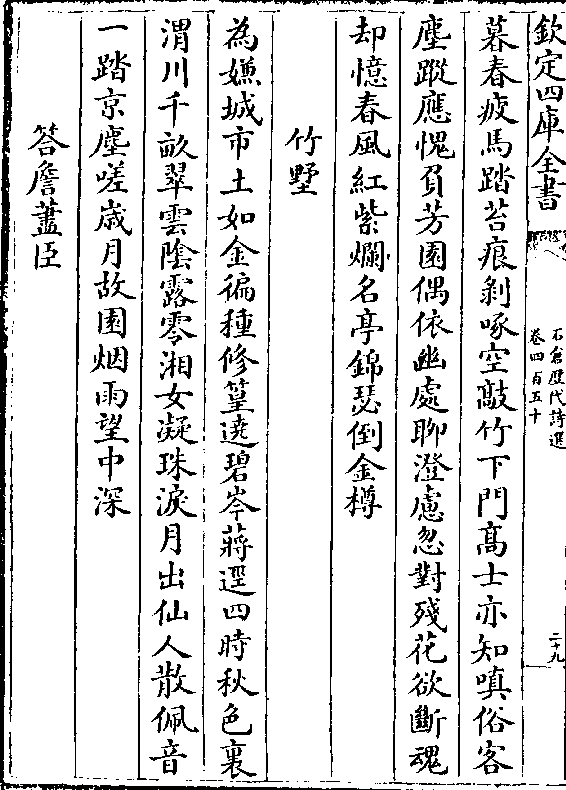 欽定四庫全書
石倉歷代詩選
卷四百五十
二十九
暮春疲馬踏苔痕剥啄空敲竹下門髙士亦知嗔俗客
塵蹤應愧負芳園偶依幽處聊澄慮忽對殘花欲斷魂
却憶春風紅紫爛名亭錦瑟倒金樽
竹墅
為嫌城市土如金徧種修篁遶碧岑蔣逕四時秋色裏
渭川千畝翠雲陰露零湘女凝珠淚月出仙人散佩音
一踏京塵嗟歳月故園烟雨望中深
答詹藎臣